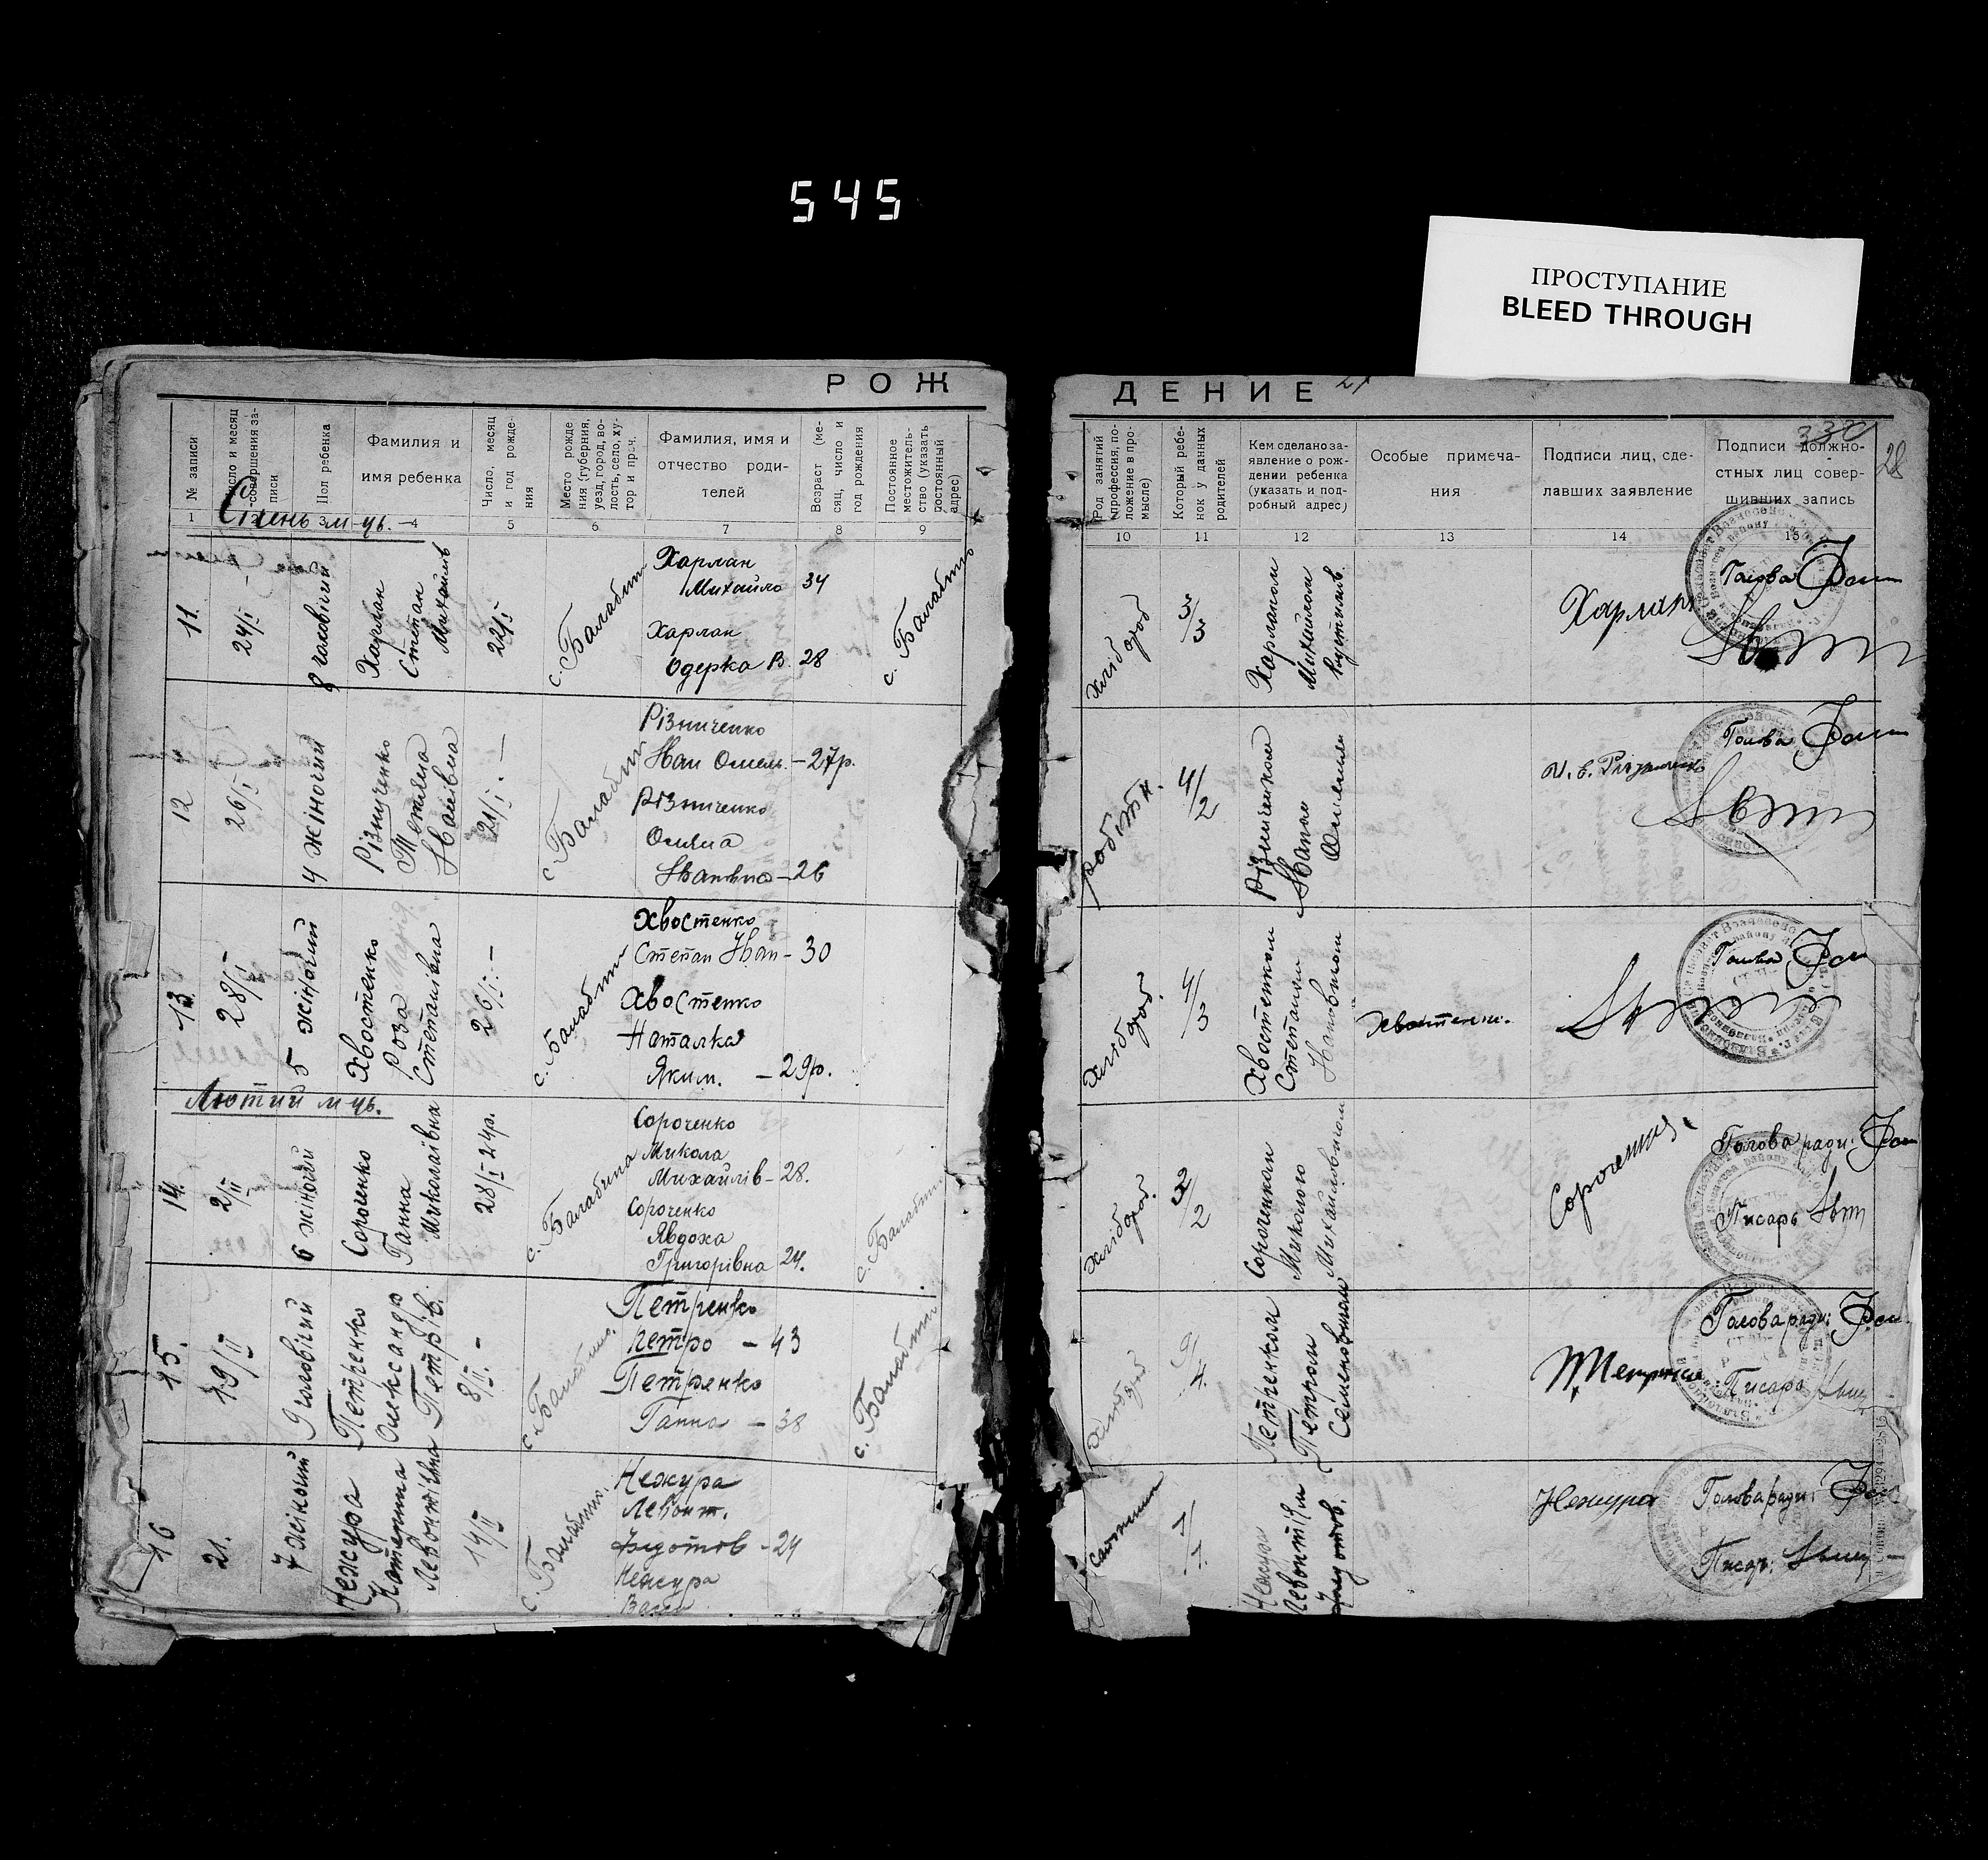 545
ПРОСТУПАНИЕ
BLEED THROUGH
РОЖ
ДЕНИЕ
27
330
28
№ записи
Число и месяц совершения записи
Пол ребенка
Фамилия и
имя ребенка
Число, месяц
и год рожде-
ния
Место рожде
ния (губерния,
уезд, город, во-
лость, село, ху-
тор и проч.
Фамилия, имя и
отчество роди-
телей
Возраст (ме-
сяц, число и
год рождения
Постоянное
местожитель-
ство (указать
постоянный
адрес)
Род занятий
(профессия, по-
ложение в про-
мысле)
Который ребе-
нок у данных
родителей
Кем сделано за-
явление о рож-
дении ребенка
(указать и под-
робный адрес)
Особые примеча-
ния
Подписи лиц, сде-
лавших заявление
Подписи должно-
стных лиц совер-
шивших запись
1 3 4 5 6 7 8 9 10 11 12 13 14 15
Січень м-ць.
11.
24/I
8 чоловічий
Харлан
Степан
Михайль
22/I
с. Балабин
Харлан
Михайло 34
Харлан
Одерка В. 28
с. Балабино
Хлібороб
3/3
Харланом
Михайлом
Харлан
Голова
12
26/I
4 жіночий
Різниченко
Тетяна
Іванівна
21/I. —
с. Балабин
Різниченко
Іван Омель. — 27р.
Різниченко
Оляна
Іванівна — 26
робітн.
4/2
Різниченком
Іваном
Голова
13.
28/I
5 жіночий
Хвостенко
Роза Марія
Степанівна
26/I. —
с. Балабин
Хвостенко
Степан Іван — 30
Хвостенко
Наталка
Яким. — 29р.
Хлібороб.
4/3
Хвостенком
Степаном
Івановичом
Хвостенко.
Голова
Лютий м-ць.
14.
2/II
6 жіночий
Сороченко
Ганна
Миколаівна
28/I 24р.
с. Балабина
Сороченко
Микола
Михайлів — 28.
Сороченко
Явдоха
Григорівна 24.
с. Балабин
Хлібороб.
2/2
Сороченком
Миколою
Михайловичом
Сороченко
Голова ради:
Писарь
15.
19/II
9 чоловічий
Петренко
Олександр
Петрів.
8/II. —
с. Балабино.
Петренко
Петро — 43
Петренко
Ганна — 38
с. Балабин
Хлібороб
9/4.
Петренком
Петром
Семеновичом
Голова ради:
Писарь
16
21.
7 жіночий
Нежура
Катерина
Левонтіівна
14/II
с. Балабино.
Нежура
Левонт.
Федотов — 24
Нежура
1/1.
Нежура
Левонтіем
Федотов.
Нежура
Голова ради:
Писарь: